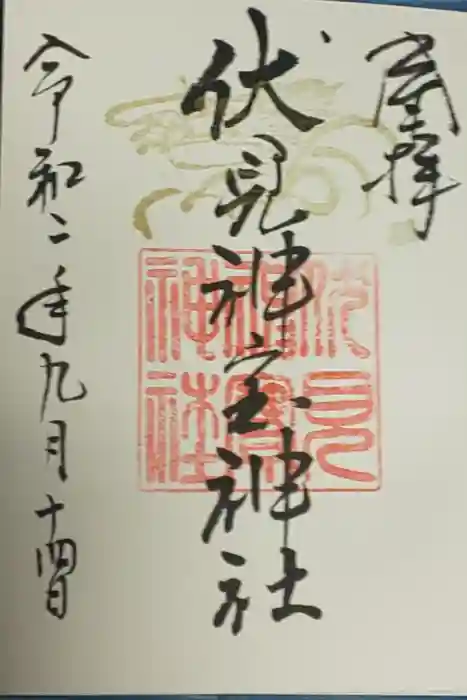 奉拝
伏見神宝神社
伏見神寳神社
令和二年九月十四日